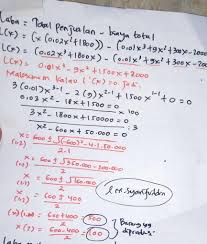 Laba = Total penjualan - biaya total
L(x) = (x(0.02x²+1800)) - (0.01x³+9x²+300x-2000
L(x) = (0.02x³+1800x) - (0.01x³+9x²+300x-200
L(x) = 0.01x³-9x²+1500x+2000
Maksimum kalau L'(x) = 0, jadi:
3(0.01)x³⁻¹ - 2(9)x²⁻¹ + 1500x¹⁻¹ + 0 = 0
0.03x² - 18x + 1500 = 0
100
3x² - 1800x + 150000 = 0
3
x² - 600x + 50.000 = 0
x = 600 ± √(-600)²-4.1.50.000
(1.2)
2.1
x = 600 ± √360.000-200.000
(1.2)
2
x = 600 ± √160.000
(1.2)
2
x = 600 ± 400
(1.2)
2
x(1) = 600+400
2
500
x(2) = 600-400
2
100
Barang yg
diproduksi